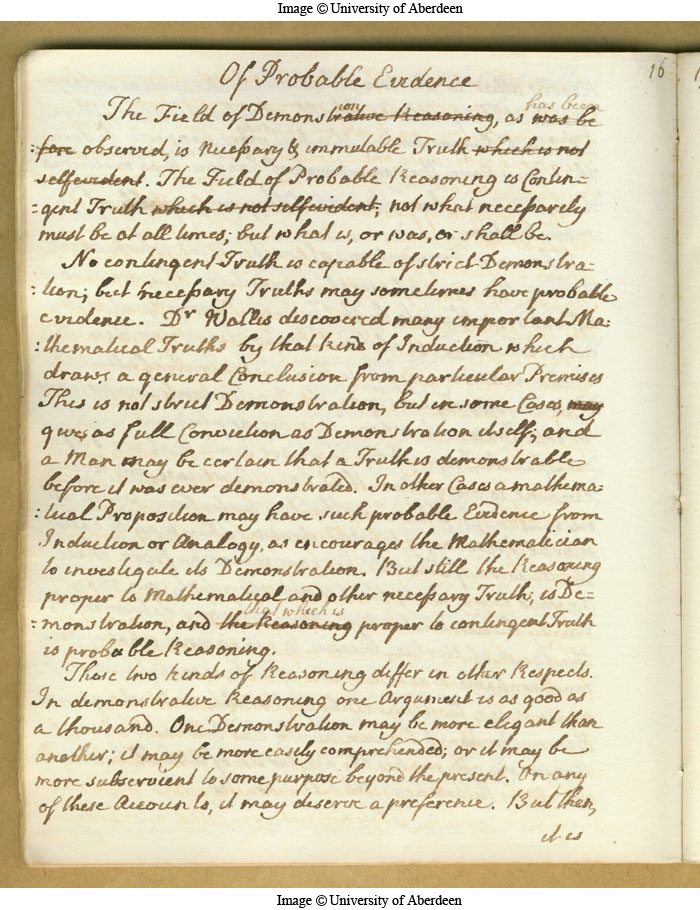 Image © University of Aberdeen
16
Of Probable Evidence
The Field of Demonstrative Reasoning, as has been was be
:fore observed, is necessary & immutable Truth which is not
selfevident. The Field of Probable Reasoning is Contin=
:gent Truth which is not selfevident, not what necessarily
must be at all times, but what is, or was, or shall be.
No contingent Truth is capable of strict Demonstra=
:tion; but necessary Truths may sometimes have probable
evidence. Dr Wallis discovered many important Ma:
:thematical Truths by that kind of Induction which
draws a general Conclusion from particular Premises
This is not strict Demonstration, but in some Cases, may
gives as full Conviction as Demonstration itself; and
a Man may be certain that a Truth is demonstrable
before it was ever demonstrated. In other Cases a mathema:
:tical Proposition may have such probable Evidence from
Induction or Analogy, as encourages the Mathematician
to investigate its Demonstration. But still the Reasoning
proper to Mathematical and other necessary Truth, is De=
:monstration, and that which is the Reasoning proper to contingent Truth
is probable Reasoning.
These two kinds of Reasoning differ in other Respects.
In demonstrative Reasoning one Argument is as good as
a thousand. One Demonstration may be more elegant than
another; it may be more easily comprehended; or it may be
more subservient to some purpose beyond the present. On any
of these Accounts, it may deserve a preference. But then,
it is
Image © University of Aberdeen